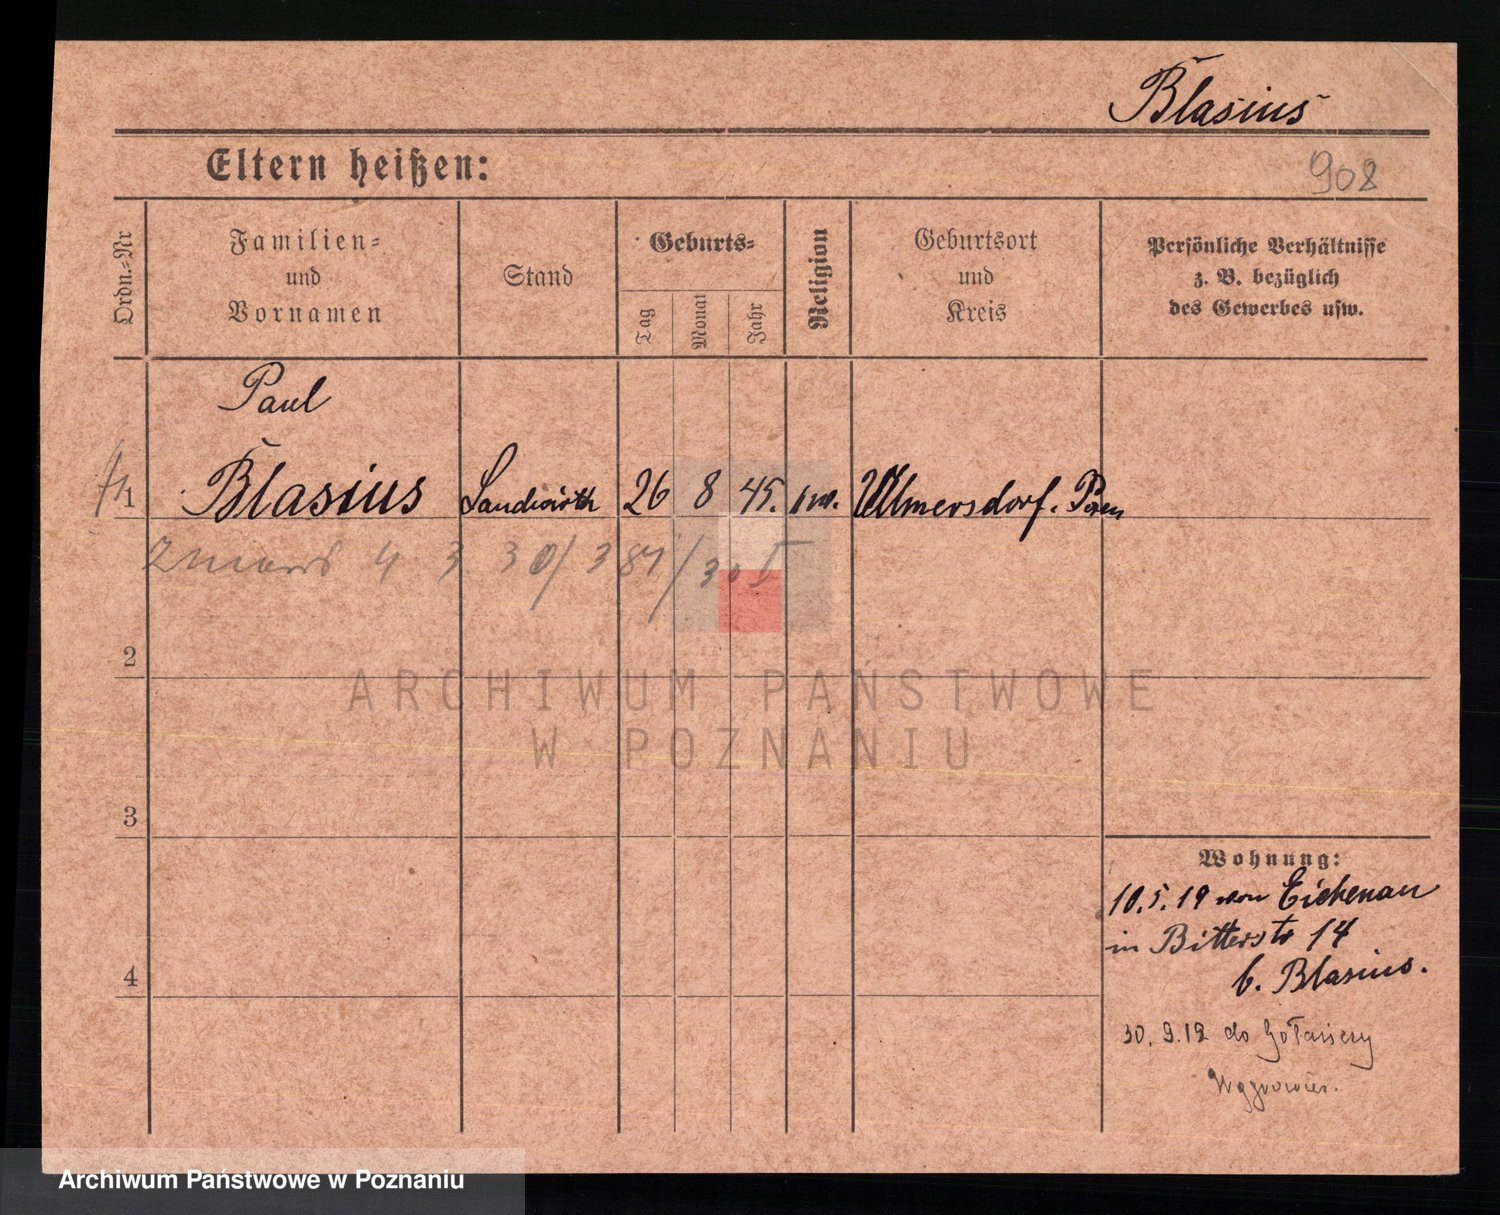 Blasius
Eltern heißen:
908
Ordn.-Nr
Familien-
und
Vornamen
Stand
Geburts-
Tag
Monat
Jahr
Religion
Geburtsort
und
Kreis
Persönliche Verhältnisse
z. B. bezüglich
des Gewerbes usw.
Paul
1 Blasius Landwirth 26 8 45. Posen
4 3 30/3 81/30 I
2
3
4
ARCHIWUM PAŃSTWOWE
W POZNANIU
Wohnung:
10.5.19 von Eichenau
in Bitterstr 14
b. Blasius.
30. 9.19 do Gołańczy
Archiwum Państwowe w Poznaniu